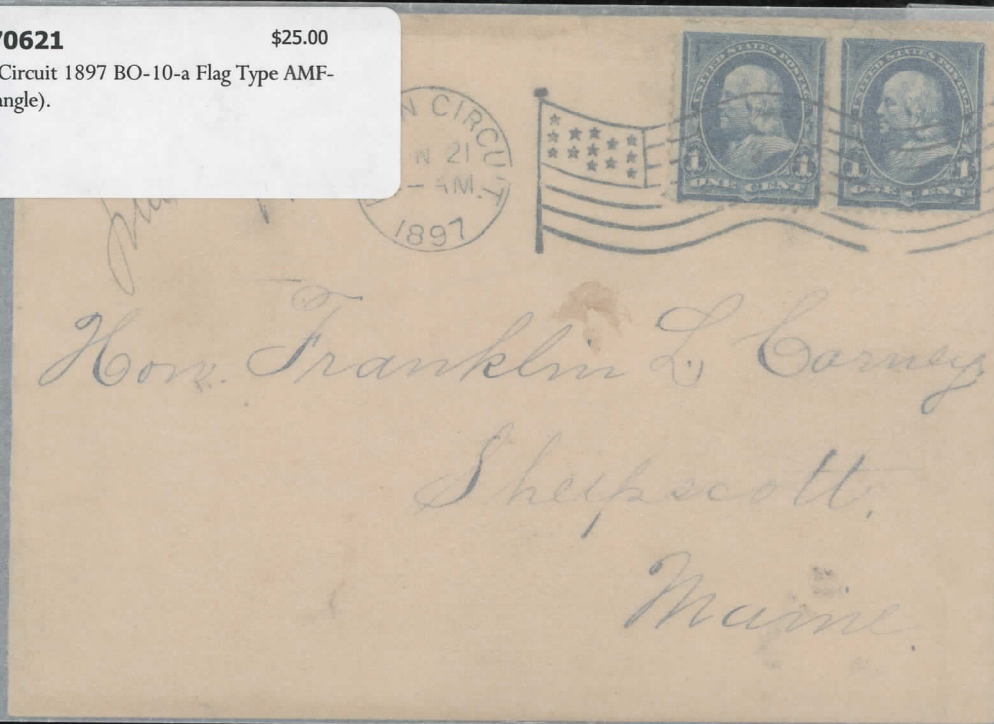 70621 $25.00
Circuit 1897 BO-10-a Flag Type AMF-
angle).
N CIRCUIT
N 21
– AM.
1897
UNITED STATES POSTAGE
1 1
ONE CENT
UNITED STATES POSTAGE
1 1
ONE CENT
Hon. Franklin L. Carney,
Sheepscott,
Maine.